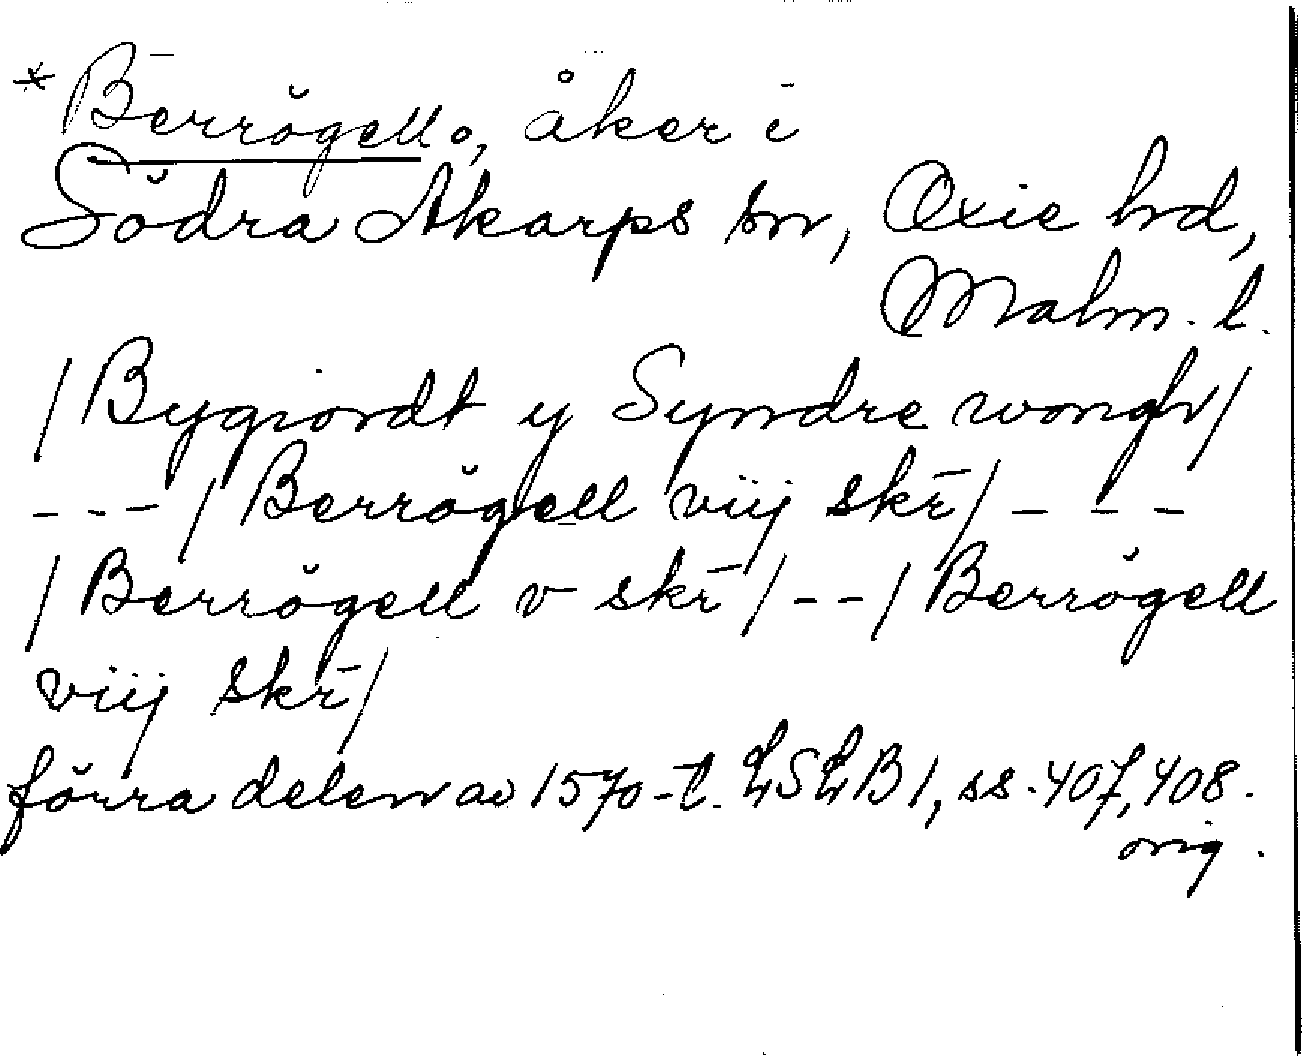 *Berrögell°, åker i
Södra Åkarps sn, Oxie hd,
Malm. l.
/Bygiordt y Syndre wongh/
---/Berrögell viij skr̄/---
/Berrögell v skr̄/--/Berrögell
viij skr̄/
förra delen av 1570-t. LSLB1, ss. 407, 408.
orig.